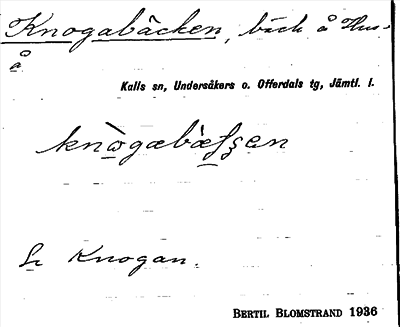 Knogabäcken, bäck å Hus-
å
Kalls sn, Undersåkers o. Offerdals tg, Jämtl. l.
Knogan.
BERTIL BLOMSTRAND 1936